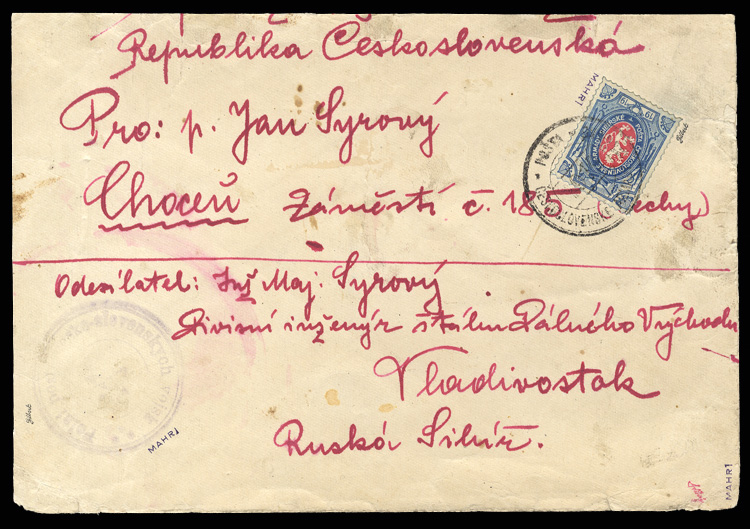 Republika Československá
Pro: p. Jan Syrový
Choceň Náměstí č. 185 (Čechy)
Odesílatel: Inž Maj: Syrový
Divisní inženýr štábu Dálného Východu
Vladivostok
Ruská Sibíř.
MAHR
MAHR
MAHR